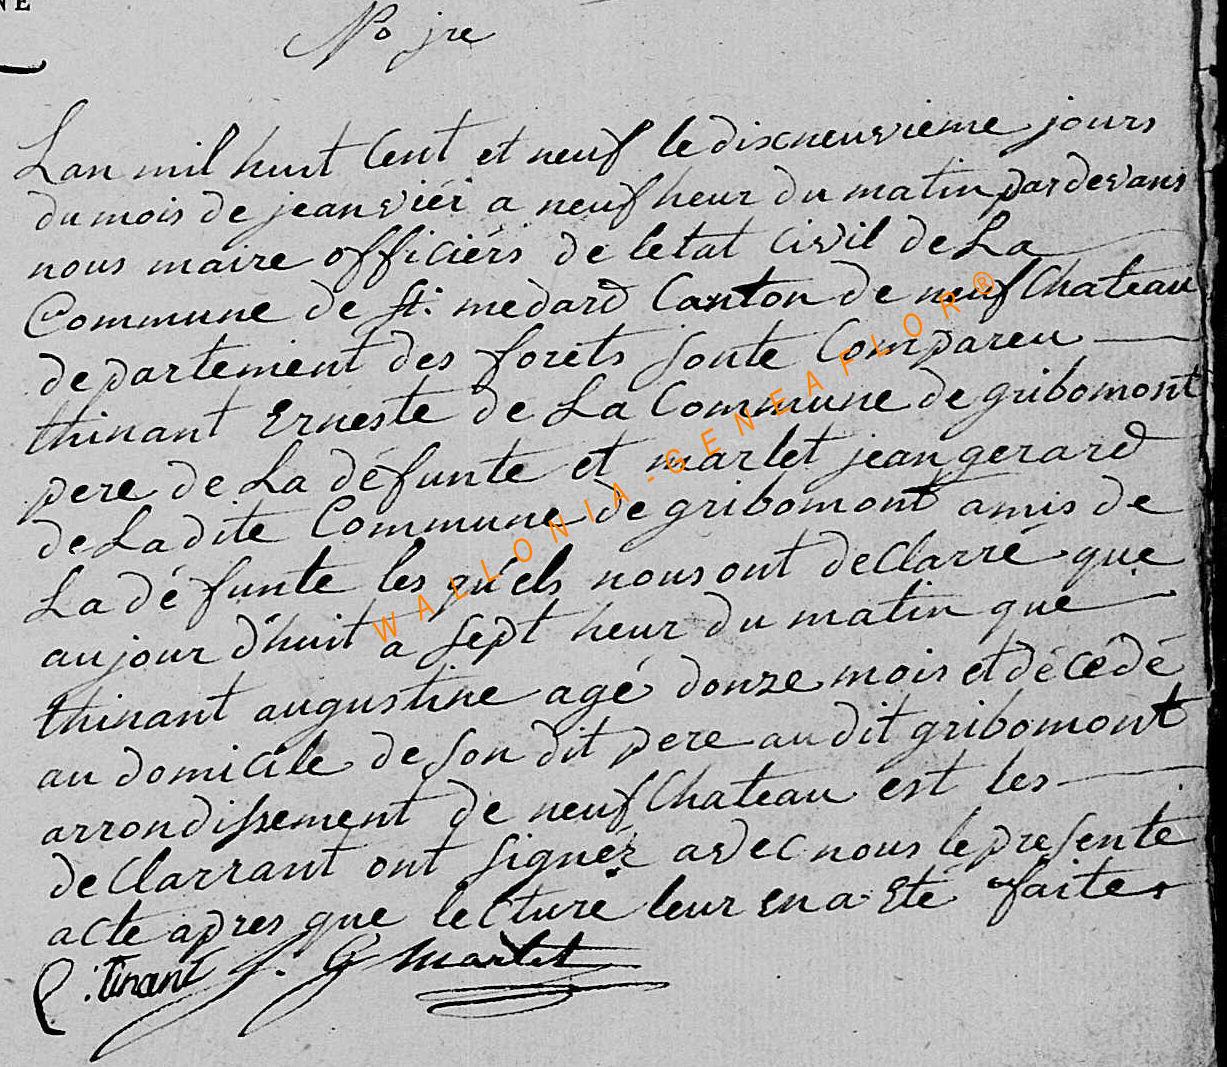 NE
No jre
Lan mil huit Cent et neuf le dixneuvieme jours
du mois de jeanviér a neuf heur du matin pardevans
nous maire officiérs de letat civil de La
Commune de St. medard Canton de neufChateau
departement des forets sonte Compareu
thinant Erneste de La Commune de gribomont
pere de La défunte et marlet jean gerard
de Ladite Commune de gribomont amis de
La défunte les qu'els nous ont déClarré que
aujour d'huit a sept heur du matin que
thinant augustine agé donze mois et décédé
au domicile de son dit pere au dit gribomont
arrondissement de neufChateau est les
deClarrant ont signéz avec nous le presente
acte apres que lecture leur en a Eté faite
E. tinant J. G marlet
WALLONIA-GENEAFLOR®